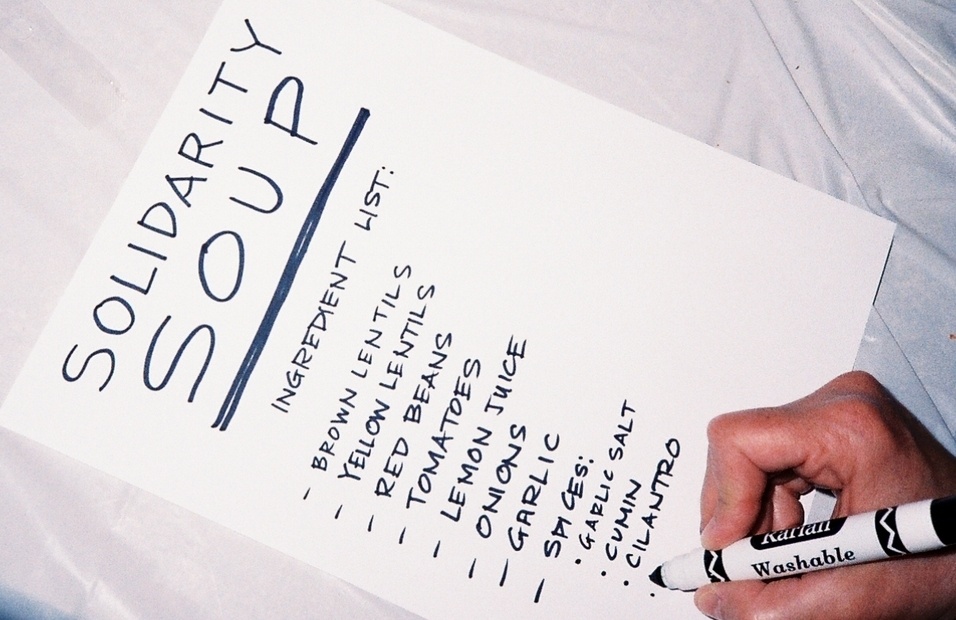 SOLIDARITY
SOUP
INGREDIENT LIST:
- BROWN LENTILS
- YELLOW LENTILS
- RED BEANS
- TOMATOES
- LEMON JUICE
- ONIONS
- GARLIC
- SPICES:
· GARLIC SALT
· CUMIN
· CILANTRO
·
Washable